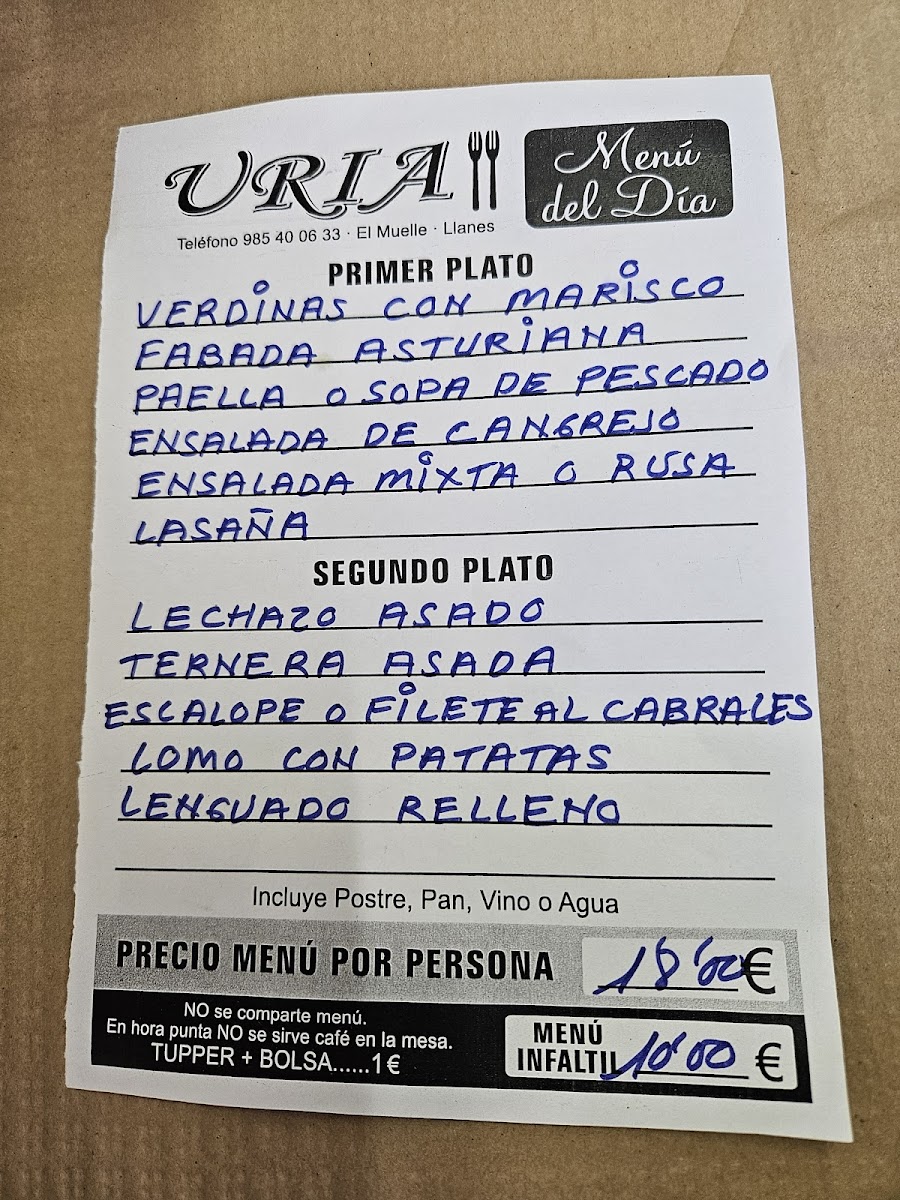 URIA
Menú
del Día
Teléfono 985 40 06 33 · El Muelle · Llanes
PRIMER PLATO
VERDINAS CON MARISCO
FABADA ASTURIANA
PAELLA O SOPA DE PESCADO
ENSALADA DE CANGREJO
ENSALADA MIXTA O RUSA
LASAÑA
SEGUNDO PLATO
LECHAZO ASADO
TERNERA ASADA
ESCALOPE O FILETE AL CABRALES
LOMO CON PATATAS
LENGUADO RELLENO
Incluye Postre, Pan, Vino o Agua
PRECIO MENÚ POR PERSONA 18'00€
NO se comparte menú.
En hora punta NO se sirve café en la mesa.
TUPPER + BOLSA......1 €
MENÚ
INFALTIL 10'00 €